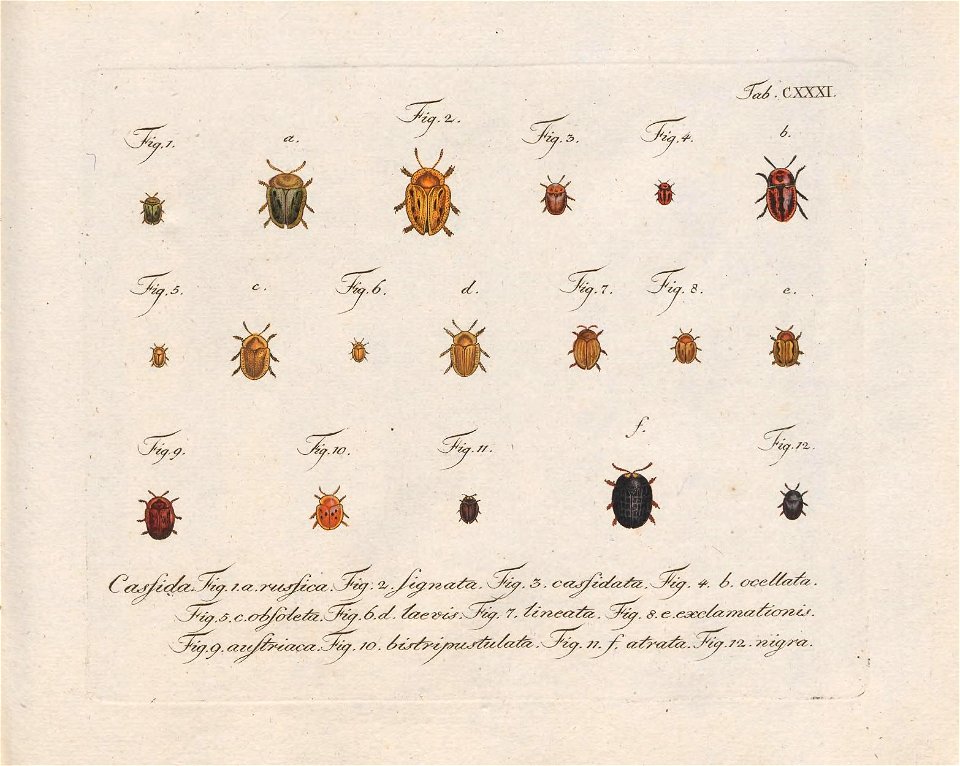 Tab. CXXXI.
Fig. 1. a. Fig. 2. Fig. 3. Fig. 4. b.
Fig. 5. c. Fig. 6. d. Fig. 7. Fig. 8. e.
Fig. 9. Fig. 10. Fig. 11. f. Fig. 12.
Caſsida. Fig. 1. a. ruſsica. Fig. 2. ſignata. Fig. 3. caſsidata. Fig. 4. b. ocellata.
Fig. 5. c. obſoleta. Fig. 6. d. laevis. Fig. 7. lineata. Fig. 8. e. exclamationis.
Fig. 9. auſtriaca. Fig. 10. bistripustulata. Fig. 11. f. atrata. Fig. 12. nigra.